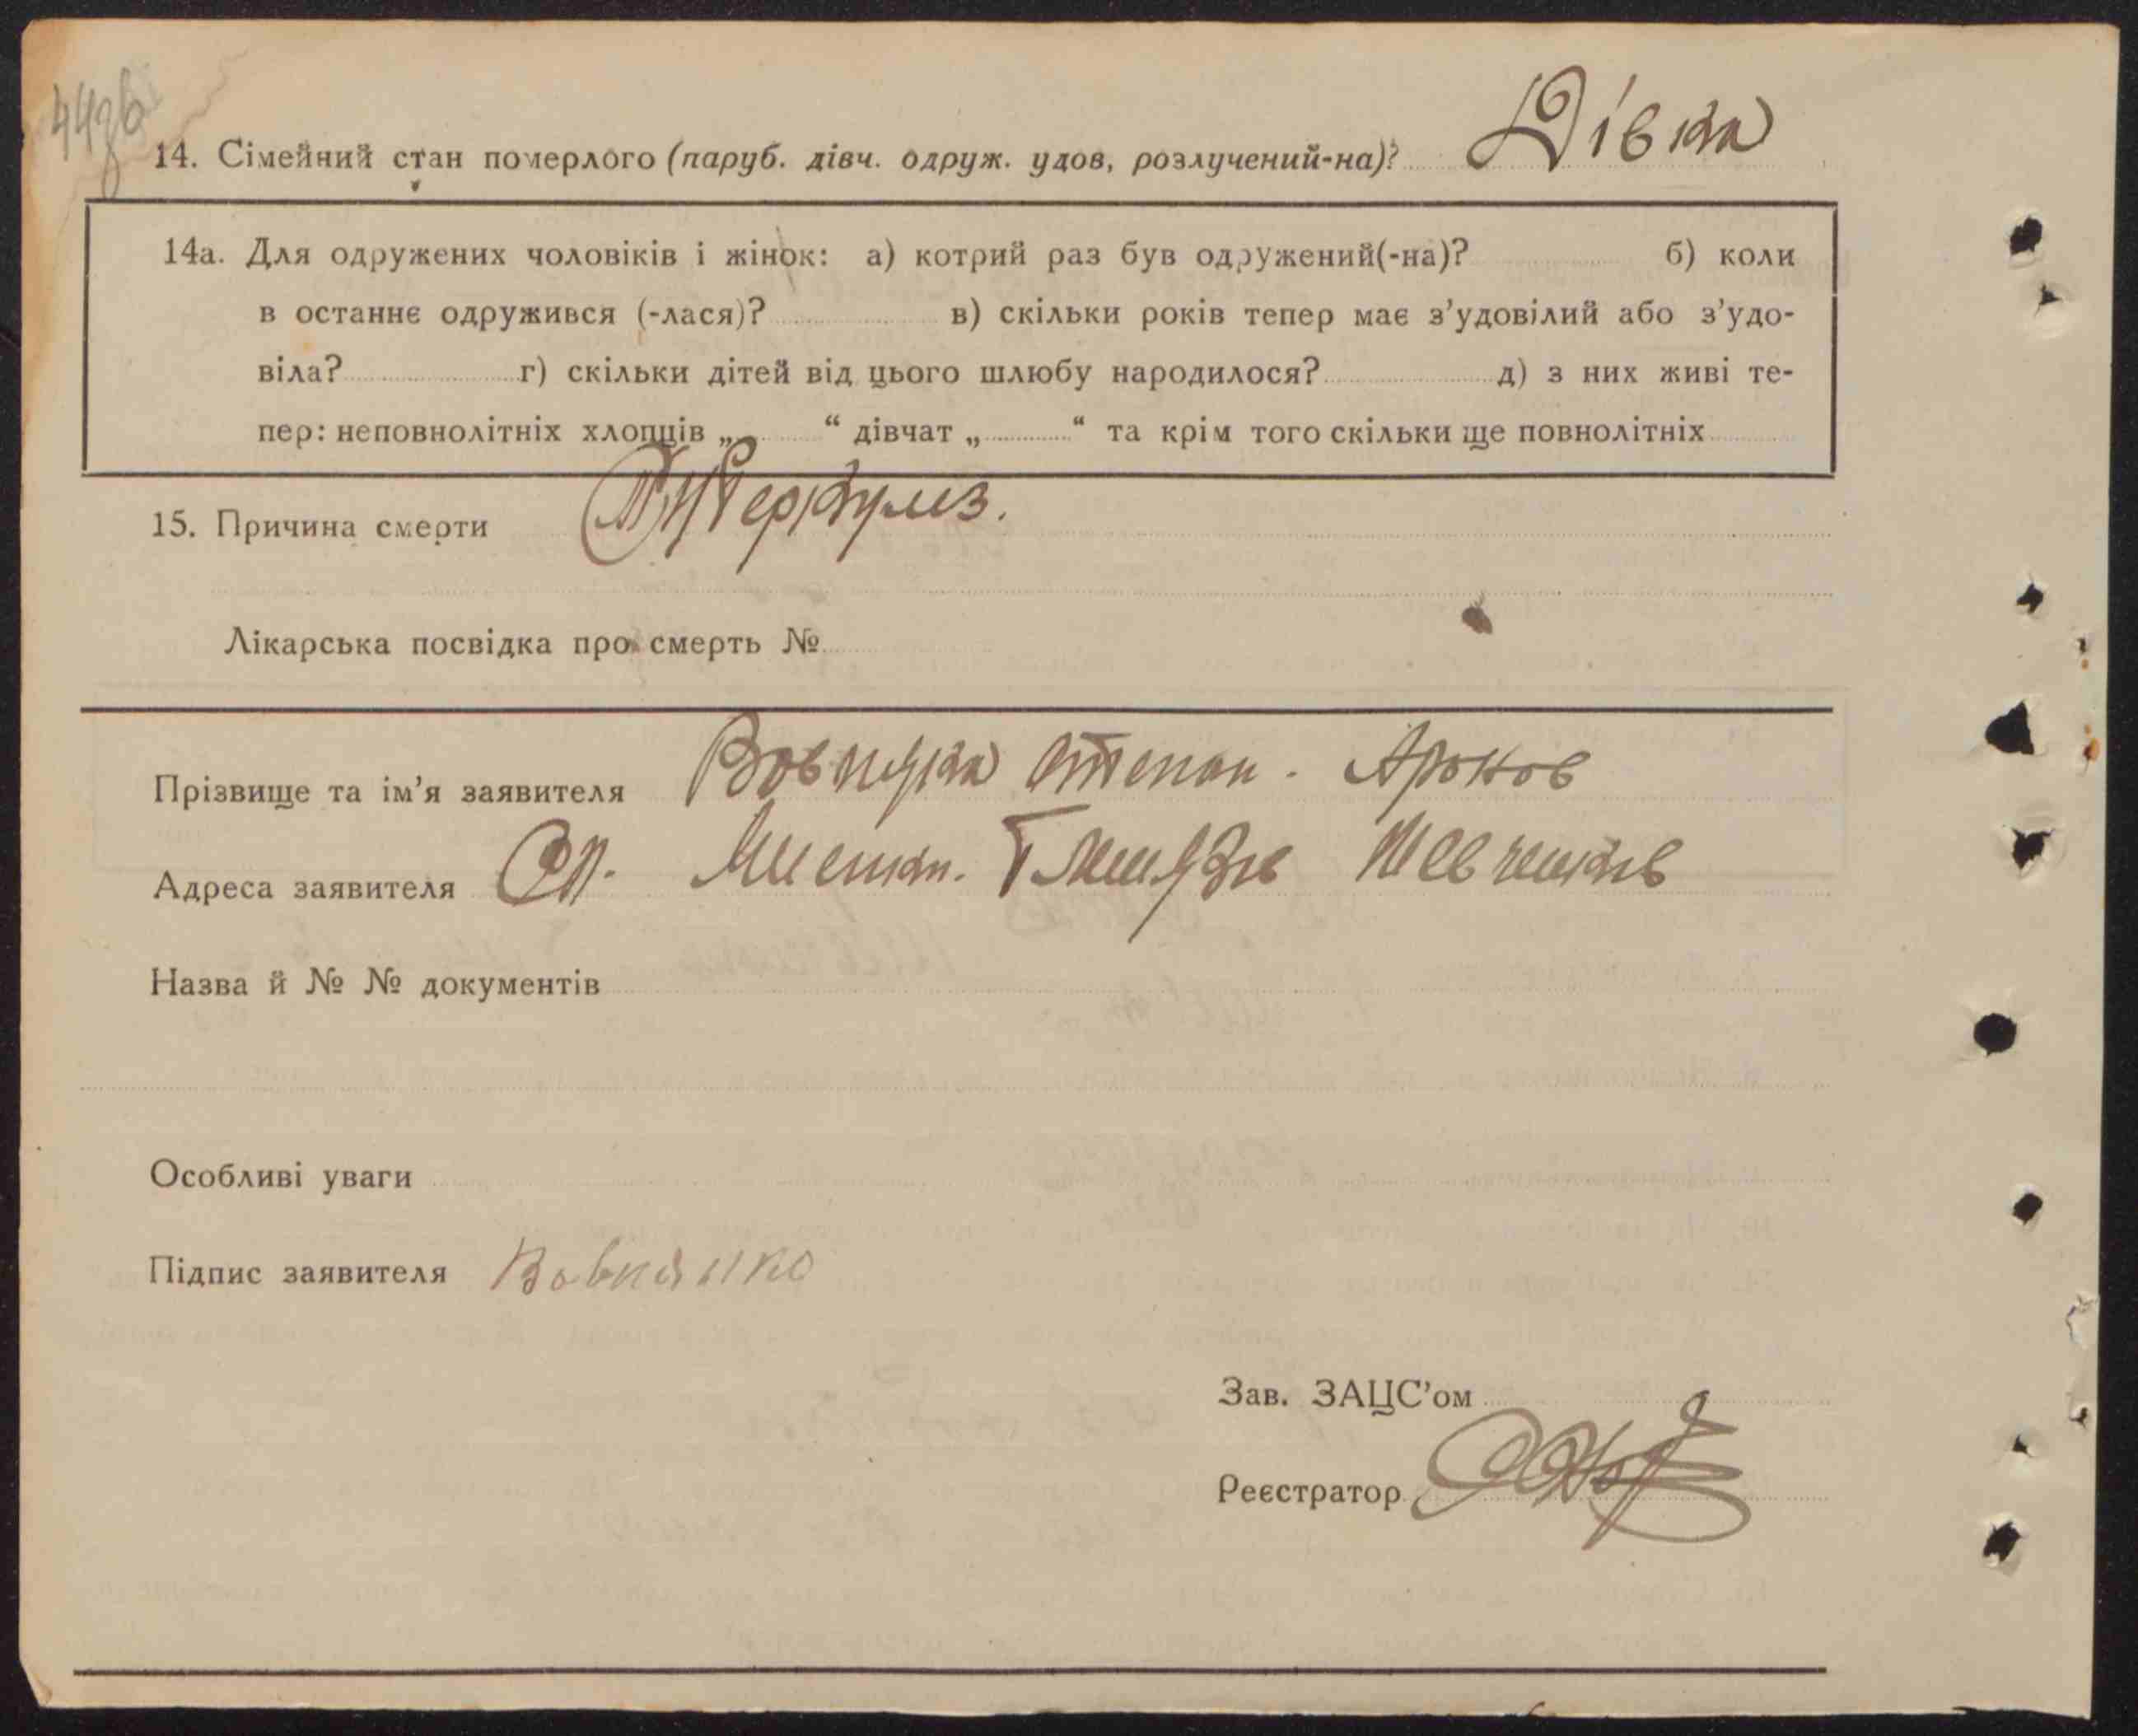 14. Сімейний стан померлого (паруб. дівч. одруж. удов, розлучений-на)? Дівка
14а. Для одружених чоловіків і жінок: а) котрий раз був одружений(-на)? б) коли
в останнє одружився (-лася)? в) скільки років тепер має з’удовілий або з’удо-
віла? г) скільки дітей від цього шлюбу народилося? д) з них живі те-
пер: неповнолітніх хлопців „ “ дівчат „ “ та крім того скільки ще повнолітніх
15. Причина смерти Туберкульз.
Лікарська посвідка про смерть №
Прізвище та ім’я заявителя Степан.
Адреса заявителя
Назва й № № документів
Особливі уваги
Підпис заявителя
Зав. ЗАЦС’ом
Реєстратор